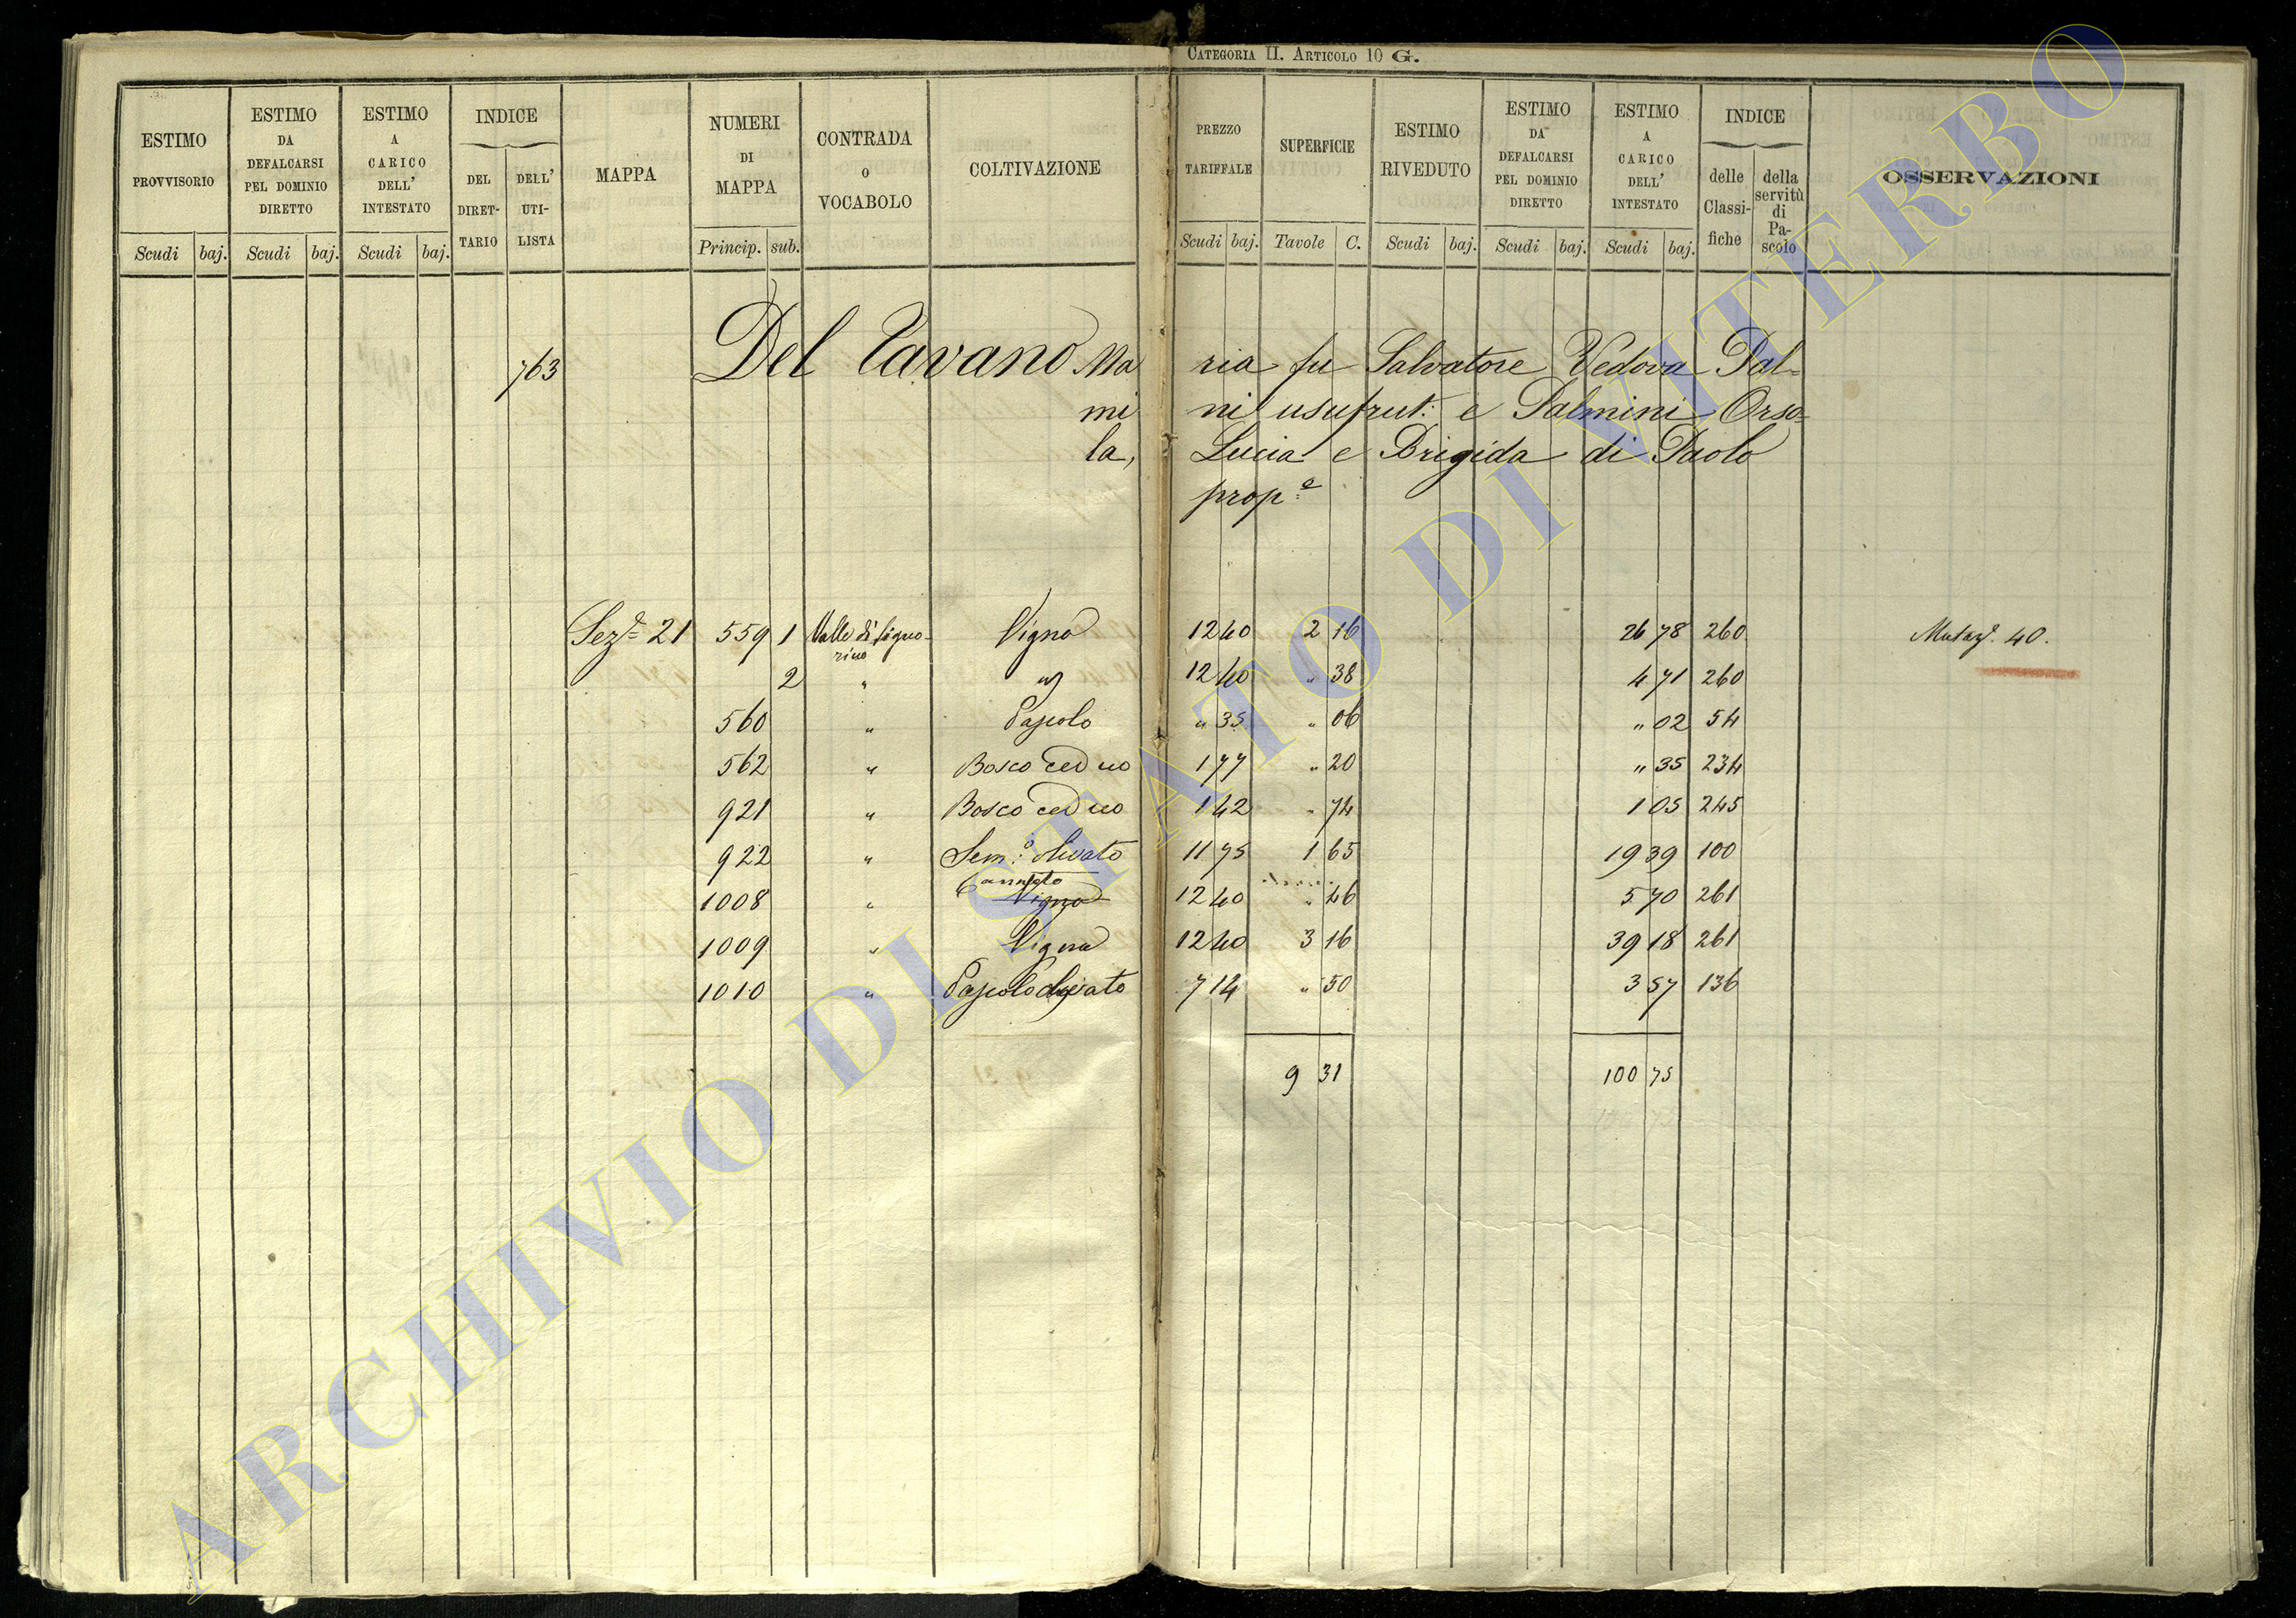 CATEGORIA II. ARTICOLO 10 G.
ESTIMO PROVVISORIO Scudi baj.
ESTIMO DA DEFALCARSI PEL DOMINIO DIRETTO Scudi baj.
ESTIMO A CARICO DELL' INTESTATO Scudi baj.
INDICE DEL DIRET-TARIO DELL' UTI-LISTA
MAPPA
NUMERI DI MAPPA Princip. sub.
CONTRADA O VOCABOLO
COLTIVAZIONE
PREZZO TARIFFALE Scudi baj.
SUPERFICIE Tavole C.
ESTIMO RIVEDUTO Scudi baj.
ESTIMO DA DEFALCARSI PEL DOMINIO DIRETTO Scudi baj.
ESTIMO A CARICO DELL' INTESTATO Scudi baj.
INDICE delle Classi-fiche della servitù di Pa-scolo
OSSERVAZIONI
763 Del Tavano Ma ria fu Salvatore Vedova Pal-
mi ni usufrut: e Palmini Orso-
la, Lucia e Brigida di Paolo
prop.e
Sez.e 21 559 1 Valle di Signo-rino Vigna 12 40 2 16 26 78 260 Mutaz. 40.
2 " " 12 40 " 38 4 71 260
560 " Pascolo " 35 " 06 " 02 54
562 " Bosco ceduo 1 77 " 20 " 35 234
921 " Bosco ceduo 1 42 " 74 1 05 245
922 " Sem.o olivato 11 75 1 65 19 39 100
1008 " Canneto Vigna 12 40 " 46 5 70 261
1009 " Vigna 12 40 3 16 39 18 261
1010 " Pascolo olivato 7 14 " 50 3 57 136
9 31 100 75
ARCHIVIO DI STATO DI VITERBO